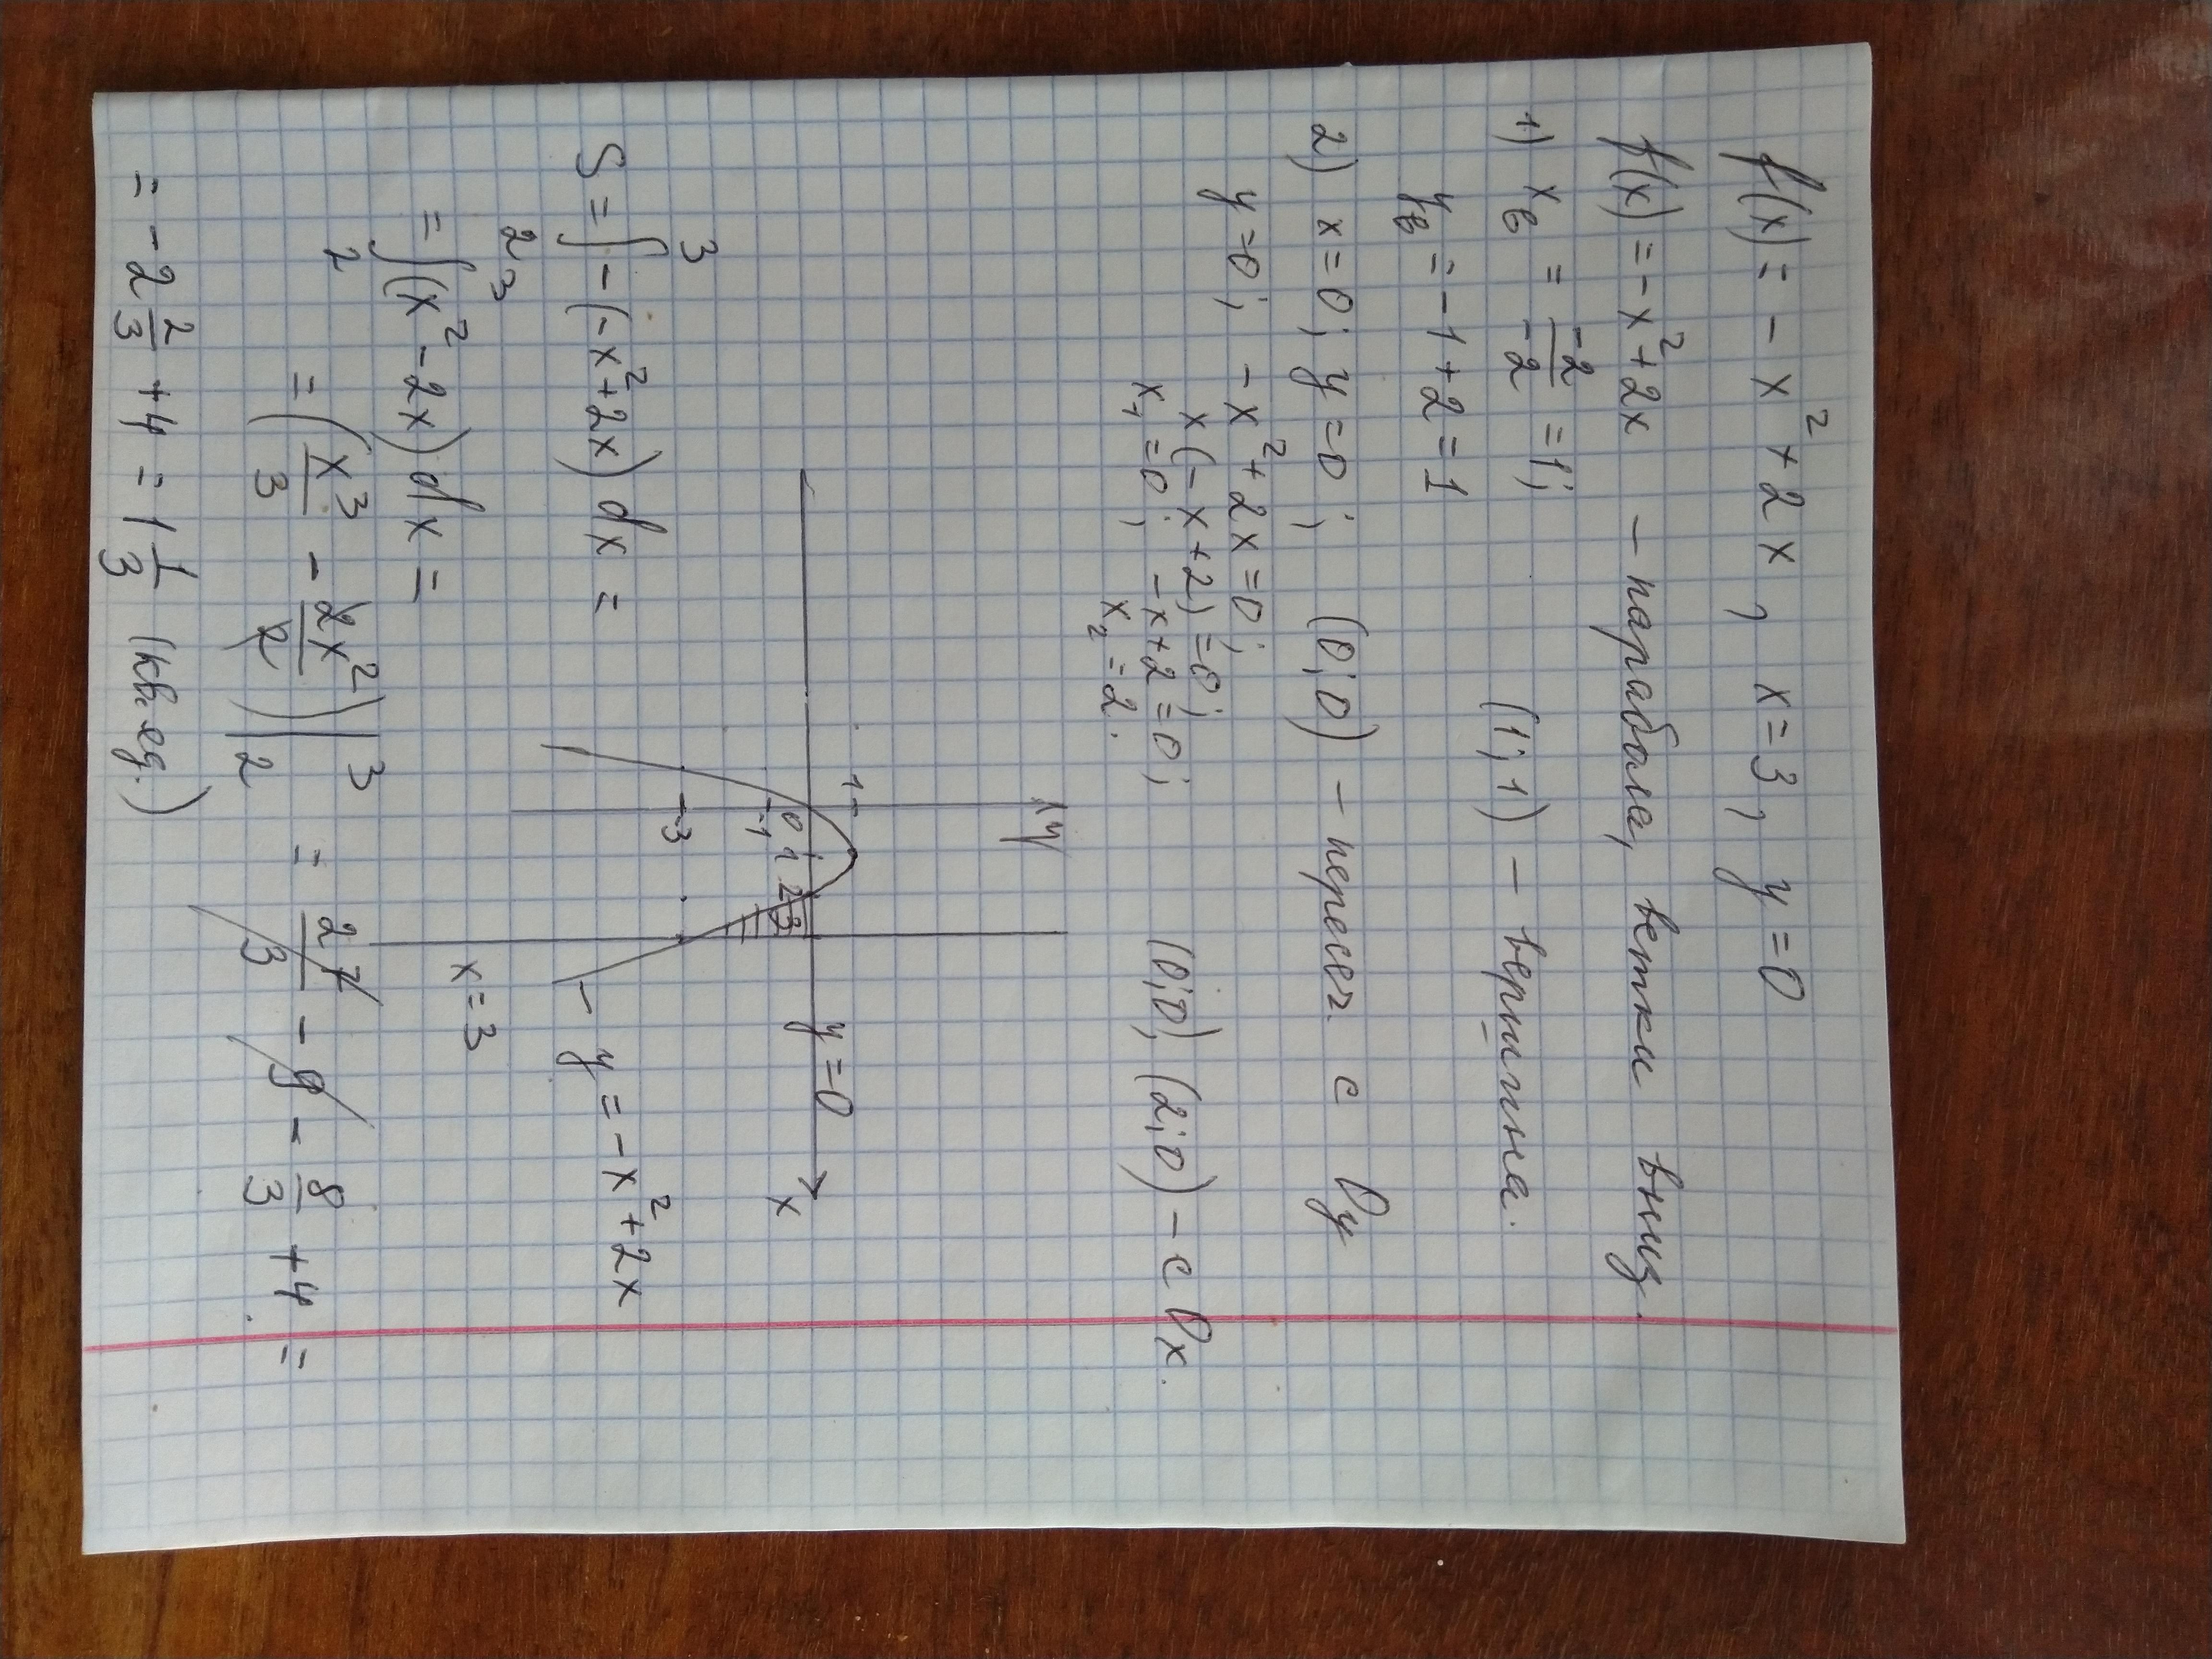 f(x) = -x² + 2x, x=3, y=0
f(x) = -x² + 2x - парабола, ветки вниз.
1) xв = -2/-2 = 1;
yв = -1+2=1 (1;1) - вершина.
2) x=0; y=0; (0;0) - пересеч. с Oy
y=0; -x²+2x=0;
x(-x+2)=0;
x₁=0; -x+2=0; (0;0) (2;0) - с Ox.
x₂=2.
y
1
y=0
0 1 2 3
x
-1
-3
y=-x²+2x
x=3
S = ∫₂³ -(-x²+2x)dx =
= ∫₂³ (x²-2x)dx =
= (x³/3 - 2x²/2)|₂³ = 27/3 - 9 - 8/3 + 4 =
= -2 2/3 + 4 = 1 1/3 (кв. ед.)